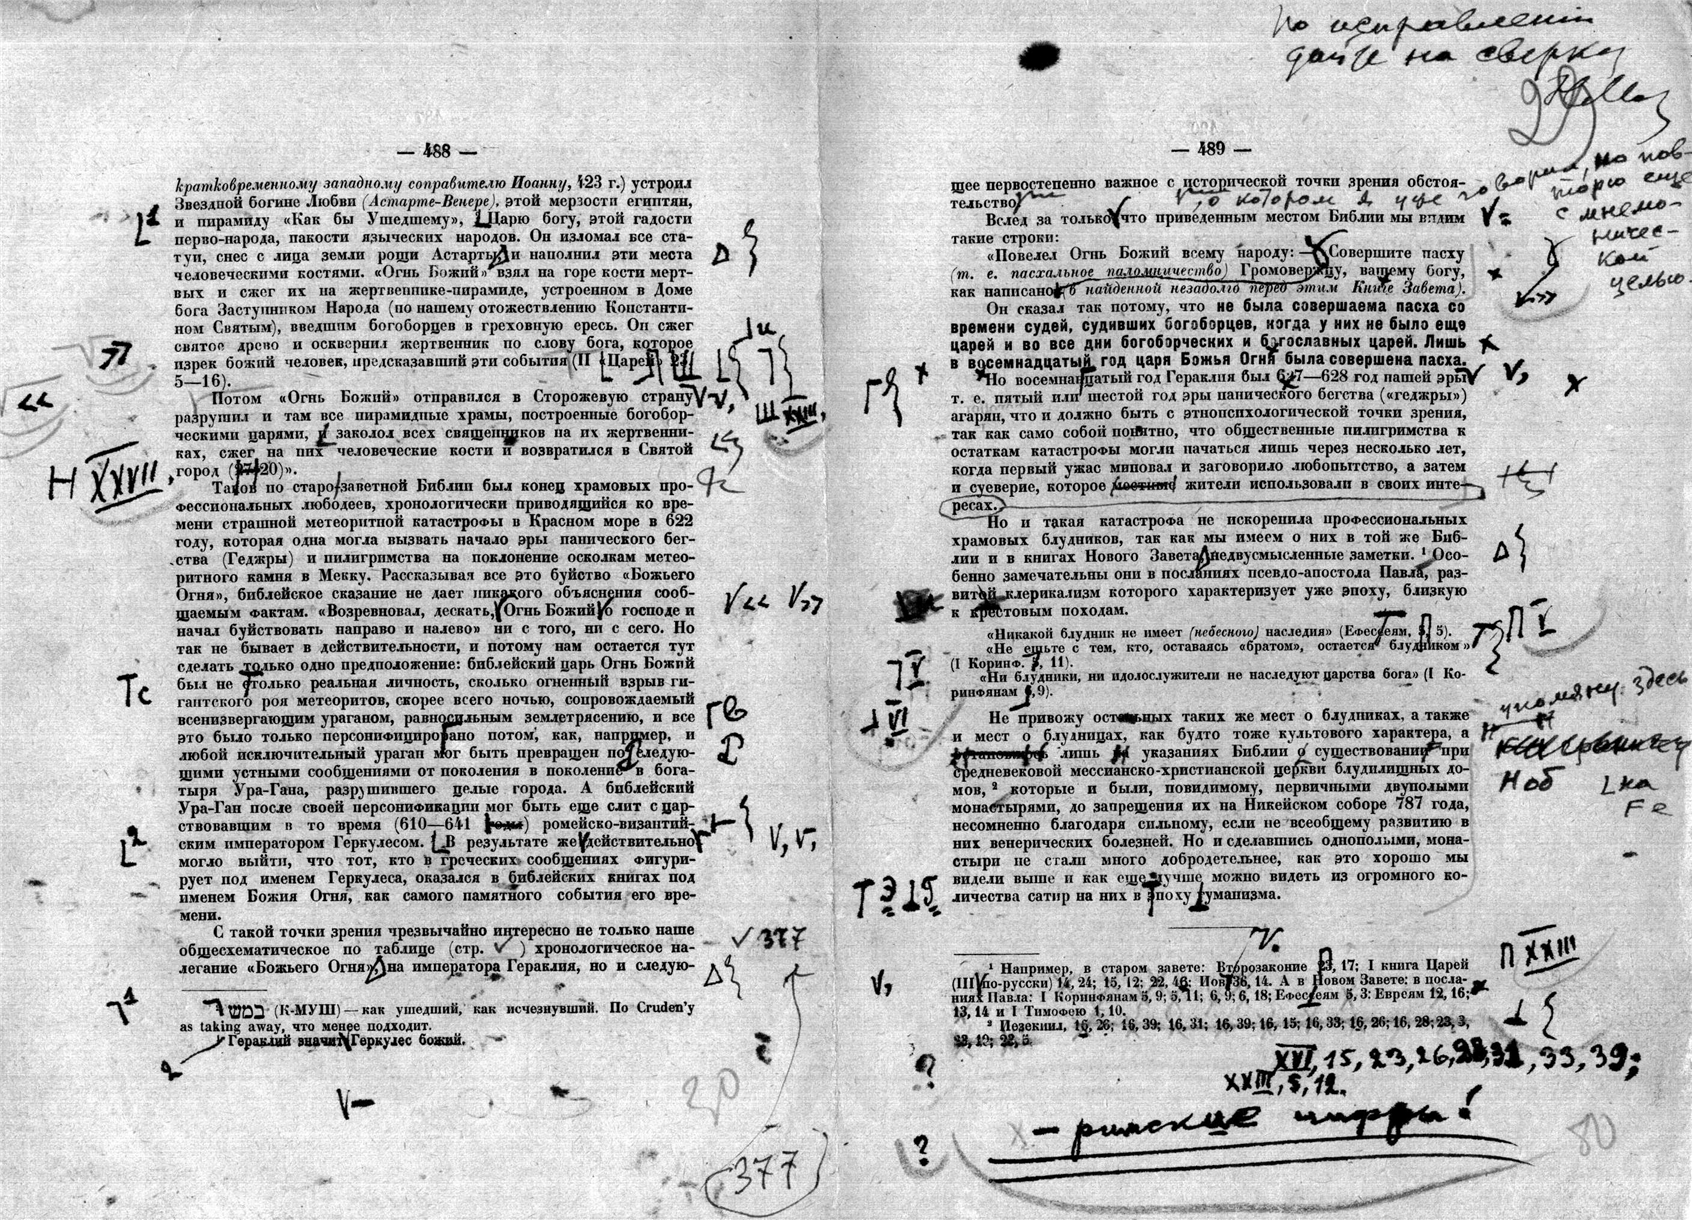 По исправлении
дайте на сверку
— 488 —
кратковременному западному соправителю Иоанну, 423 г.) устроил
Звездной богине Любви (Астарте-Венере), этой мерзости египтян,
и пирамиду «Как бы Ушедшему», Царю богу, этой гадости
перво-народа, пакости языческих народов. Он изломал все ста-
туи, снес с лица земли рощи Астарты и наполнил эти места
человеческими костями. «Огнь Божий» взял на горе кости мерт-
вых и сжег их на жертвеннике-пирамиде, устроенном в Доме
бога Заступником Народа (по нашему отожествлению Константи-
ном Святым), введшим богоборцев в греховную ересь. Он сжег
святое древо и осквернил жертвенник по слову бога, которое
изрек божий человек, предсказавший эти события (II «Царей»
5—16).
Потом «Огнь Божий» отправился в Сторожевую страну
разрушил и там все пирамидные храмы, построенные богобор-
ческими царями, и заколол всех священников на их жертвенни-
ках, сжег на них человеческие кости и возвратился в Святой
город ( 20)».
Н XXVII,
Таков по старо-заветной Библии был конец храмовых про-
фессиональных любодеев, хронологически приводящийся ко вре-
мени страшной метеоритной катастрофы в Красном море в 622
году, которая одна могла вызвать начало эры панического бег-
ства (Геджры) и пилигримства на поклонение осколкам метео-
ритного камня в Мекку. Рассказывая все это буйство «Божьего
Огня», библейское сказание не дает никакого объяснения сооб-
щаемым фактам. «Возревновал, дескать, Огнь Божий о господе и
начал буйствовать направо и налево» ни с того, ни с сего. Но
так не бывает в действительности, и потому нам остается тут
сделать только одно предположение: библейский царь Огнь Божий
был не столько реальная личность, сколько огненный взрыв ги-
гантского роя метеоритов, скорее всего ночью, сопровождаемый
всенизвергающим ураганом, равносильным землетрясению, и все
это было только персонифицировано потом, как, например, и
любой исключительный ураган мог быть превращен последую-
щими устными сообщениями от поколения в поколение в бога-
тыря Ура-Гана, разрушившего целые города. А библейский
Ура-Ган после своей персонификации мог быть еще слит с цар-
ствовавшим в то время (610—641 годы) ромейско-византий-
ским императором Геркулесом. В результате же действительно
могло выйти, что тот, кто в греческих сообщениях фигури-
рует под именем Геркулеса, оказался в библейских книгах под
именем Божия Огня, как самого памятного события его вре-
мени.
С такой точки зрения чрезвычайно интересно не только наше
общесхематическое по таблице (стр. ) хронологическое на-
377
легание «Божьего Огня» на императора Гераклия, но и следую-
(К-МУШ) — как ушедший, как исчезнувший. По Cruden'у
as taking away, что менее подходит.
Гераклий значит Геркулес божий.
30
377
— 489 —
щее первостепенно важное с исторической точки зрения обстоя-
тельство
, о котором я уже говорил, но пов-
торю еще
с мнемо-
ничес-
кой
целью.
Вслед за только что приведенным местом Библии мы видим
такие строки:
«Повелел Огнь Божий всему народу: — Совершите пасху
(т. е. пасхальное паломничество) Громовержцу, вашему богу,
как написано (в найденной незадолго перед этим Книге Завета).
Он сказал так потому, что не была совершаема пасха со
времени судей, судивших богоборцев, когда у них не было еще
царей и во все дни богоборческих и богославных царей. Лишь
в восемнадцатый год царя Божья Огня была совершена пасха.
Но восемнадцатый год Гераклия был 627—628 год нашей эры
т. е. пятый или шестой год эры панического бегства («геджры»)
агарян, что и должно быть с этнопсихологической точки зрения,
так как само собой понятно, что общественные пилигримства к
остаткам катастрофы могли начаться лишь через несколько лет,
когда первый ужас миновал и заговорило любопытство, а затем
и суеверие, которое местные жители использовали в своих инте-
ресах.
Но и такая катастрофа не искоренила профессиональных
храмовых блудников, так как мы имеем о них в той же Биб-
лии и в книгах Нового Завета недвусмысленные заметки. ¹ Осо-
бенно замечательны они в посланиях псевдо-апостола Павла, раз-
витой клерикализм которого характеризует уже эпоху, близкую
к крестовым походам.
«Никакой блудник не имеет (небесного) наследия» (Ефесеям, 5, 5).
«Не ешьте с тем, кто, оставаясь «братом», остается блудником»
(I Коринф. , 11).
«Ни блудники, ни идолослужители не наследуют царства бога» (I Ко-
ринфянам , 9).
Не привожу остальных таких же мест о блудниках, а также
и мест о блудницах, как будто тоже культового характера, а
лишь указаниях Библии о существовании при
упомяну здесь
средневековой мессианско-христианской церкви блудилищных до-
мов, ² которые и были, повидимому, первичными двуполыми
монастырями, до запрещения их на Никейском соборе 787 года,
несомненно благодаря сильному, если не всеобщему развитию в
них венерических болезней. Но и сделавшись однополыми, мона-
стыри не стали много добродетельнее, как это хорошо мы
видели выше и как еще лучше можно видеть из огромного ко-
личества сатир на них в эпоху гуманизма.
¹ Например, в старом завете: Второзаконие 23, 17; I книга Царей
П XXIII
(III по-русски) 14, 24; 15, 12; 22, 46; Иов 36, 14. А в Новом Завете: в посла-
ниях Павла: I Коринфянам 5, 9; 5, 11; 6, 9; 6, 18; Ефесеям 5, 3: Евреям 12, 16;
13, 14 и I Тимофею 1, 10.
² Иезекиил, 16, 26; 16, 39; 16, 31; 16, 39; 16, 15; 16, 33; 16, 26; 16, 28; 23, 3,
XVI, 15, 23, 26, 28, 31, 33, 39;
XXIII, 5, 12.
— римские цифры!
80